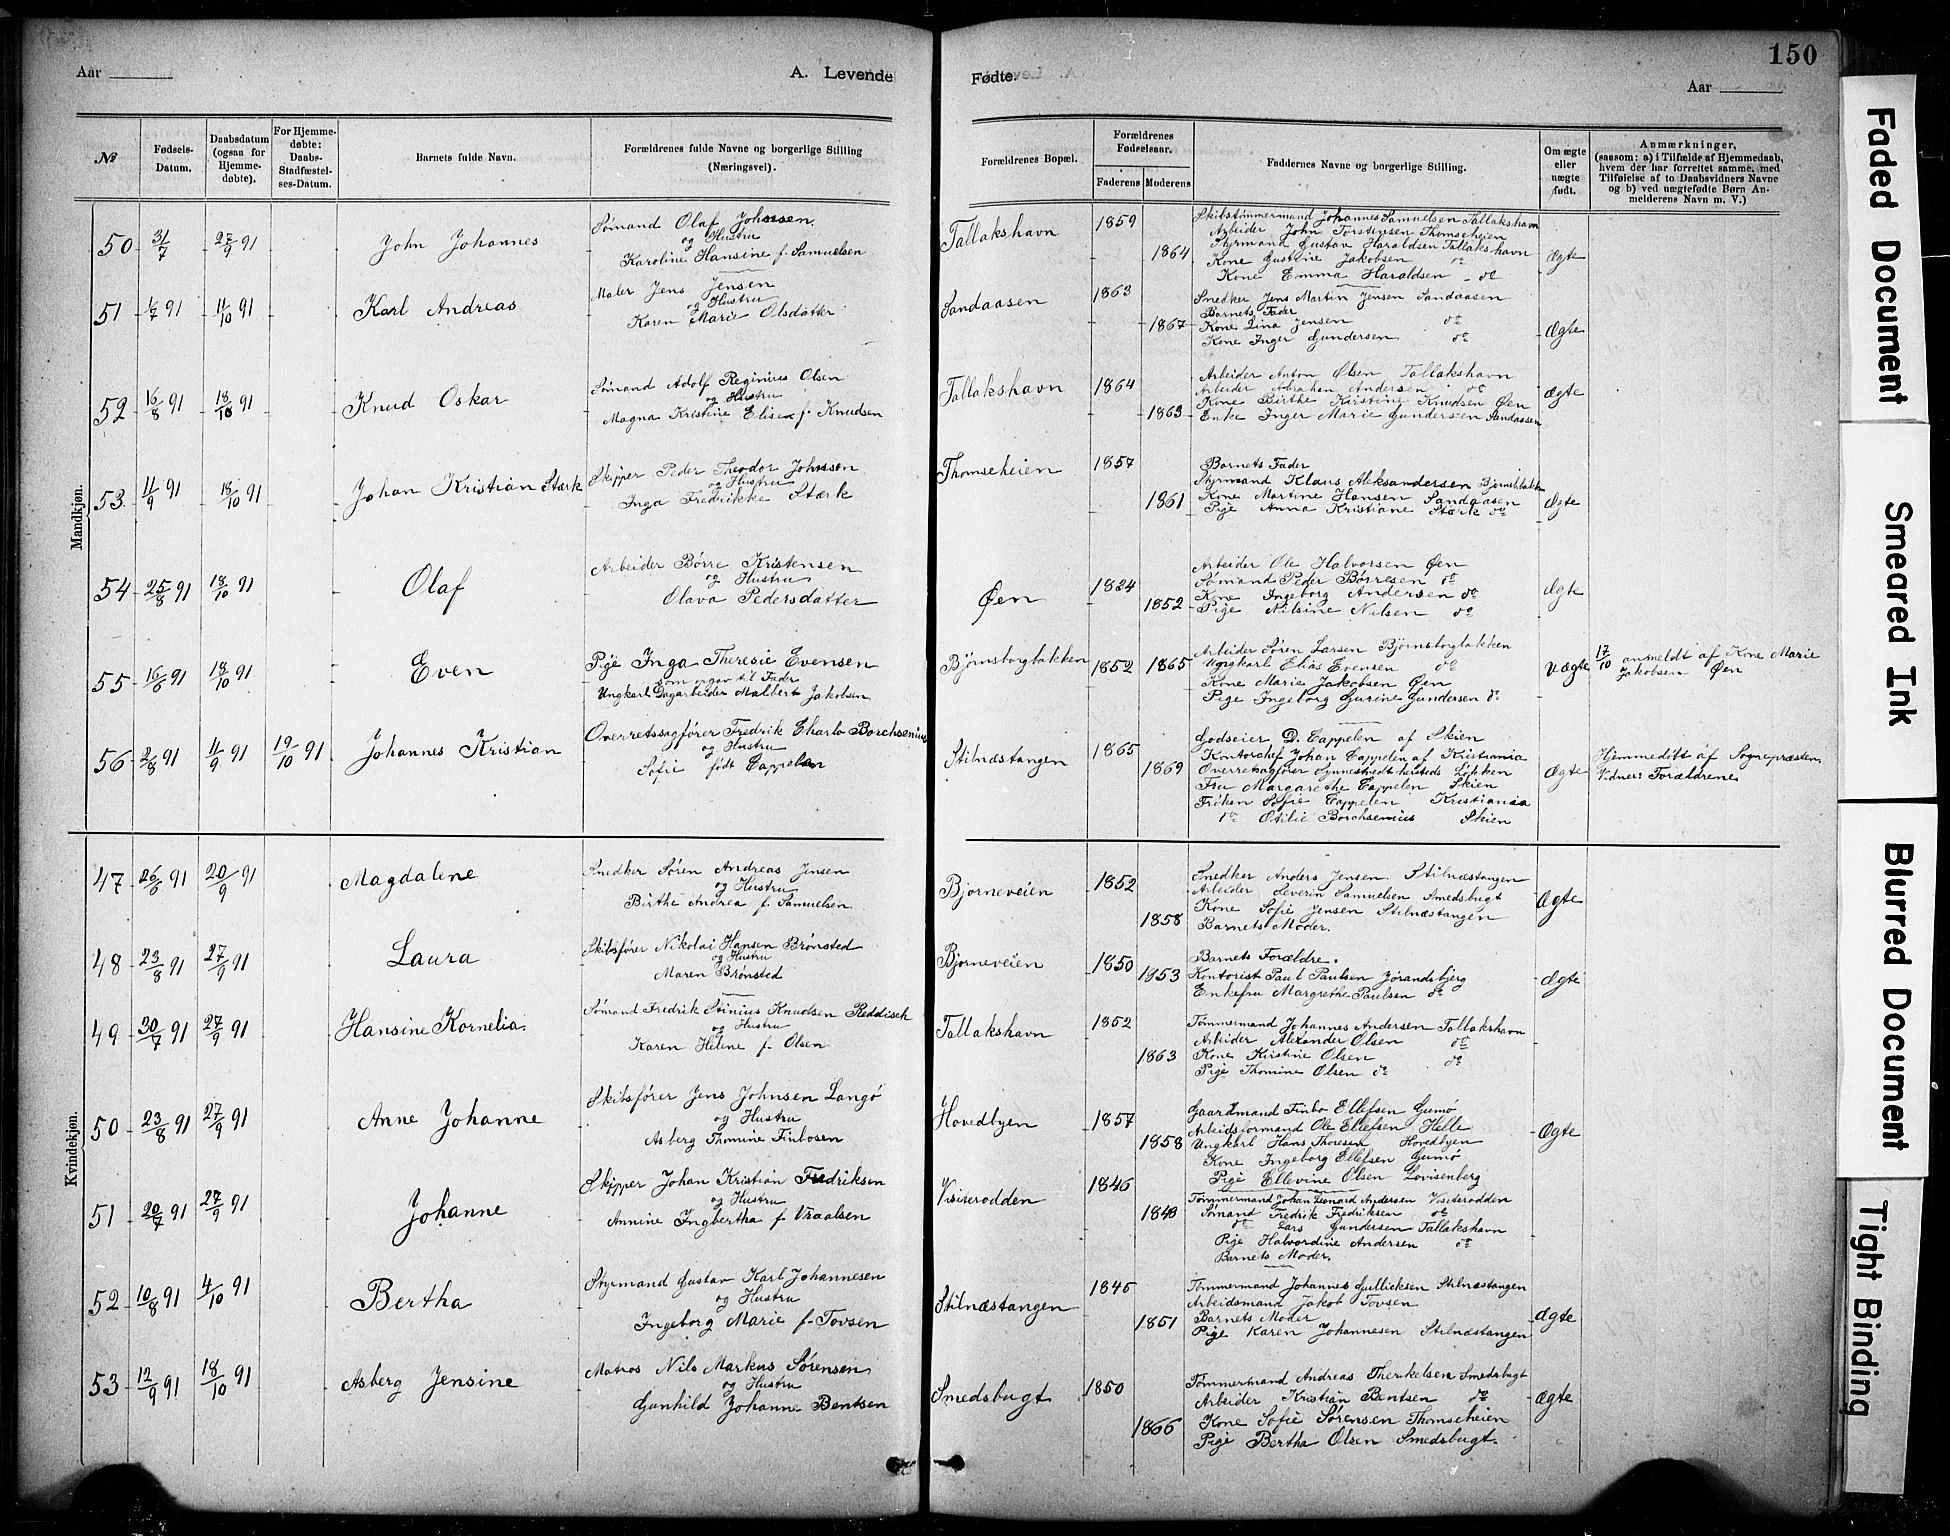 150
Aar
A. Levende
Fødte.
Aar
№
Fødsels-Datum.
Daabsdatum (ogsaa for Hjemme-døbte).
For Hjemme-døbte: Daabs-Stadfæstel-ses-Datum.
Barnets fulde Navn.
Forældrenes fulde Navne og borgerlige Stilling (Næringsvei).
Forældrenes Bopæl.
Forældrenes Fødselsaar.
Faderens
Moderens
Faddernes Navne og borgerlige Stilling.
Om ægte eller uægte født.
Anmærkninger, (saasom: a) i Tilfælde af Hjemmedaab, hvem der har forrettet samme, med Tilføielse af to Daabsvidners Navne og b) ved uægtefødte Børn An-melderens Navn m. V.)
Mandkjøn.
50 31/7 27/9 91 John Johannes
Sømand Olaf Johnsen
og Hustru
Karoline Hansine f. Samuelsen
Tallakshavn 1859 1864
Skibstømmermand Johannes Samuelsen Tallakshavn
Arbeider John Torstensen Thomseheien
Styrmand Gustav Haraldsen Tallakshavn
Kone Gustine Jakobsen do
Kone Emma Haraldsen do
Ægte
51 1/7 91 11/10 91 Karl Andreas
Maler Jens Jensen
og Hustru
Karen Marie Olsdatter
Sandaasen 1863 1867
Snedker Jens Martin Jensen Sandaasen
Barnets Fader
Kone Lina Jensen do
Kone Inger Gundersen do
Ægte
52 16/8 91 18/10 91 Knud Oskar
Sømand Adolf Reginius Olsen
og Hustru
Magna Kristine Elise f. Knudsen
Tallakshavn 1864 1863
Arbeider Anton Olsen Tallakshavn
Arbeider Abraham Andersen do
Kone Birthe Kirstine Knudsen Øen
Enke Inger Marie Gundersen Sandaasen
Ægte
53 11/9 91 18/10 91 Johan Kristian Stærk
Skipper Peder Theodor Johnsen
og Hustru
Inga Fredrikke Stærk
Thomseheien 1857 1861
Barnets Fader
Styrmand Klaus Aleksandersen
Kone Martine Hansen Sandaasen
Pige Anna Kristiane Stærk do
Ægte
54 25/8 91 18/10 91 Olaf
Arbeider Børre Kristensen
og Hustru
Olava Pedersdatter
Øen 1824 1852
Arbeider Ole Halvorsen Øen
Sømand Peder Børresen do
Kone Ingeborg Andersen do
Pige Nilsine Nilsen do
Ægte
55 16/6 91 18/10 91 Even
Pige Inga Theresie Evensen
som opgav til Fader
Ungkarl Dagarbeider Malbert Jakobsen
Bjørnsborgbakken 1852 1865
Arbeider Søren Larsen Bjørnsborgbakken
Ungkarl Elias Evensen do
Kone Marie Jakobsen Øen
Pige Ingeborg Gurine Gundersen do
Uægte
17/10 anmeldt af Kone Marie
Jakobsen Øen
56 2/8 91 11/9 91 19/10 91 Johannes Kristian
Overretssagfører Fredrik Charlo Borchsenius
og Hustru
Sofie født Cappelen
Stilnæstangen 1865 1869
Godseier D. Cappelen af Skien
Kontorchef Johan Cappelen af Kristiania
Overretssagfører Løkken
Fru Margarethe Cappelen Skien
Frøken Sofie Cappelen Kristiania
do Otilie Borchsenius Skien
Ægte
Hjemmedøbt af Sognepræsten
Vidner: Forældrene
Kvindekjøn.
47 26/6 91 20/9 91 Magdalene
Snedker Søren Andreas Jensen
og Hustru
Birthe Andrea f. Samuelsen
Bjørneveien 1852 1858
Snedker Anders Jensen Stilnæstangen
Arbeider Severin Samuelsen Smedsbugt
Kone Sofie Jensen Stilnæstangen
Barnets Moder.
Ægte
48 23/8 91 27/9 91 Laura
Skibsfører Nikolai Hansen Brønsted
og Hustru
Maren Brønsted
Bjørneveien 1850 1853
Barnets Forældre.
Kontorist Paul Paulsen Jørandsbjerg
Enkefru Margrethe Paulsen do
Ægte
49 30/7 91 27/9 91 Hansine Kornelia
Sømand Fredrik Stinius Knudsen Reddisch
og Hustru
Karen Helene f. Olsen
Tallakshavn 1852 1863
Tømmermand Johannes Andersen Tallakshavn
Arbeider Alexander Olsen do
Kone Kirstine Olsen do
Pige Thomine Olsen do
50 23/8 91 27/9 91 Anne Johanne
Skibsfører Jens Johnsen Langø
og Hustru
Asberg Thomine Finbosen
Hovedbyen 1857 1858
Gaardmand Finbo Ellefsen Gumø
Arbeidsformand Ole Ellefsen Helle
Ungkarl Hans Thoresen Hovedbyen
Kone Ingeborg Ellefsen Gumø
Pige Ellevine Olsen Lovisenberg
Ægte
51 20/7 91 27/9 91 Johanne
Skipper Johan Kristian Fredriksen
og Hustru
Annine Ingbertha f. Vraalsen
Visiterodden 1846 1848
Tømmermand Johan Leonard Andersen Visiterodden
Sømand Fredrik Fredriksen do
do Lars Gundersen Tallakshavn
Pige Halvordine Andersen do
Barnets Moder.
52 10/8 91 4/10 91 Bertha
Styrmand Gustav Karl Johannesen
og Hustru
Ingeborg Marie f. Tovsen
Stilnæstangen 1845 1851
Tømmermand Johannes Gullicksen Stilnæstangen
Arbeidsmand Jakob Tovsen
Barnets Moder
Pige Karen Johannesen Stilnæstangen
Ægte
53 12/9 91 18/10 91 Asberg Jensine
Matros Nils Markus Sørensen
og Hustru
Gunhild Johanne Bentsen
Smedsbugt 1850 1866
Tømmermand Andreas Therkelsen Smedsbugt
Arbeider Kristian Bentsen do
Kone Sofie Sørensen Thomseheien
Pige Bertha Olsen Smedsbugt.
Ægte
Faded Document
Smeared Ink
Blurred Document
Tight Binding